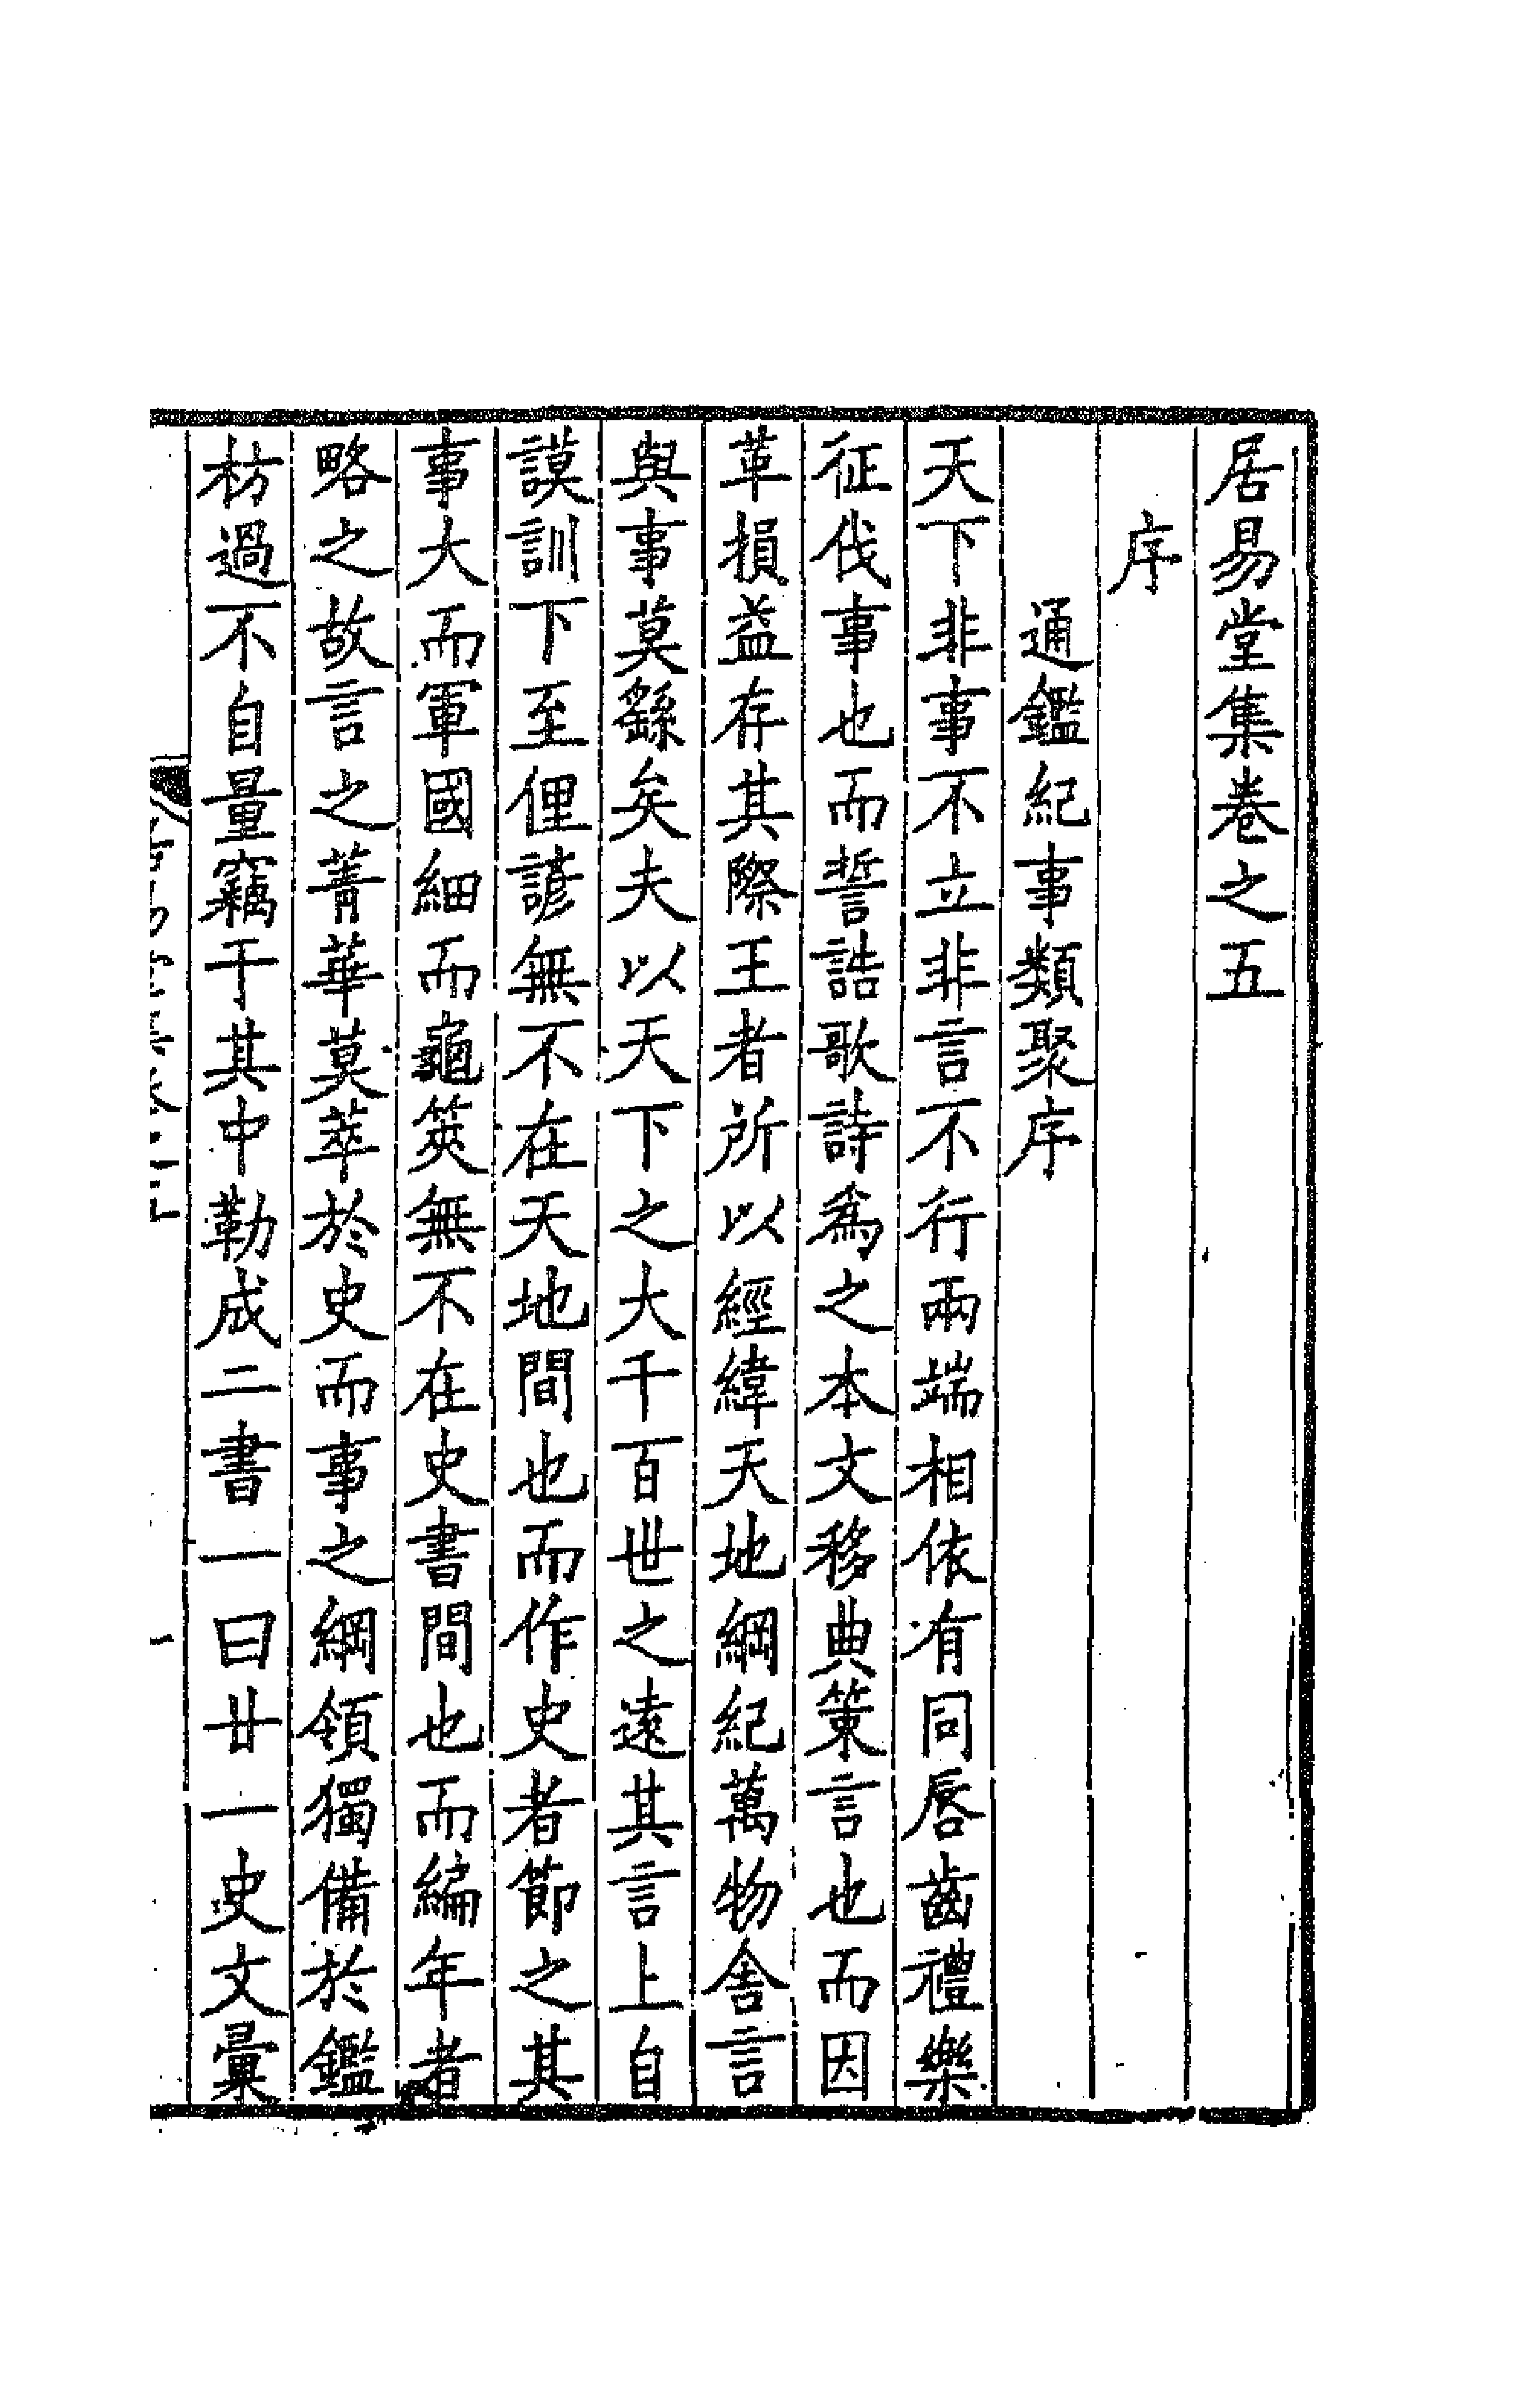 居易堂集卷之五
序
通鑑紀事類聚序
天下非事不立非言不行兩端相依有同唇齒禮樂
征伐事也而誓誥歌詩爲之本文移典策言也而因
革損益存其際王者所以經緯天地綱紀萬物舍言
與事莫繇矣夫以天下之大千百世之遠其言上自
謨訓下至俚諺無不在天地間也而作史者節之其
事大而軍國細而龜筴無不在史書間也而編年者
略之故言之菁華莫萃於史而事之綱領獨備於鑑
枋過不自量竊于其中勒成二書一曰廿一史文彙